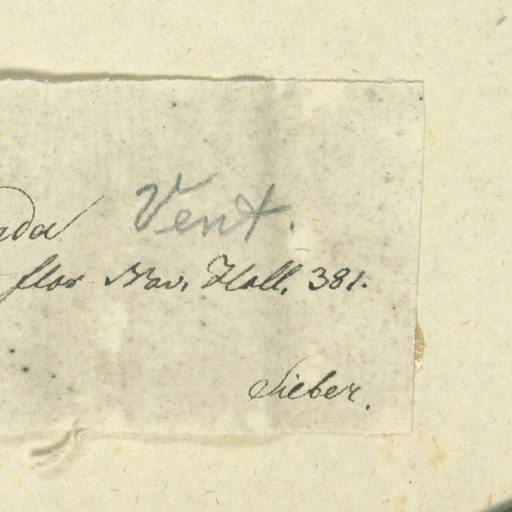 Vent.
flor Nov. Holl. 381.
Sieber.